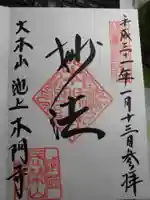 平成三十一年一月十三日参拝
妙法
大本山 池上本門寺